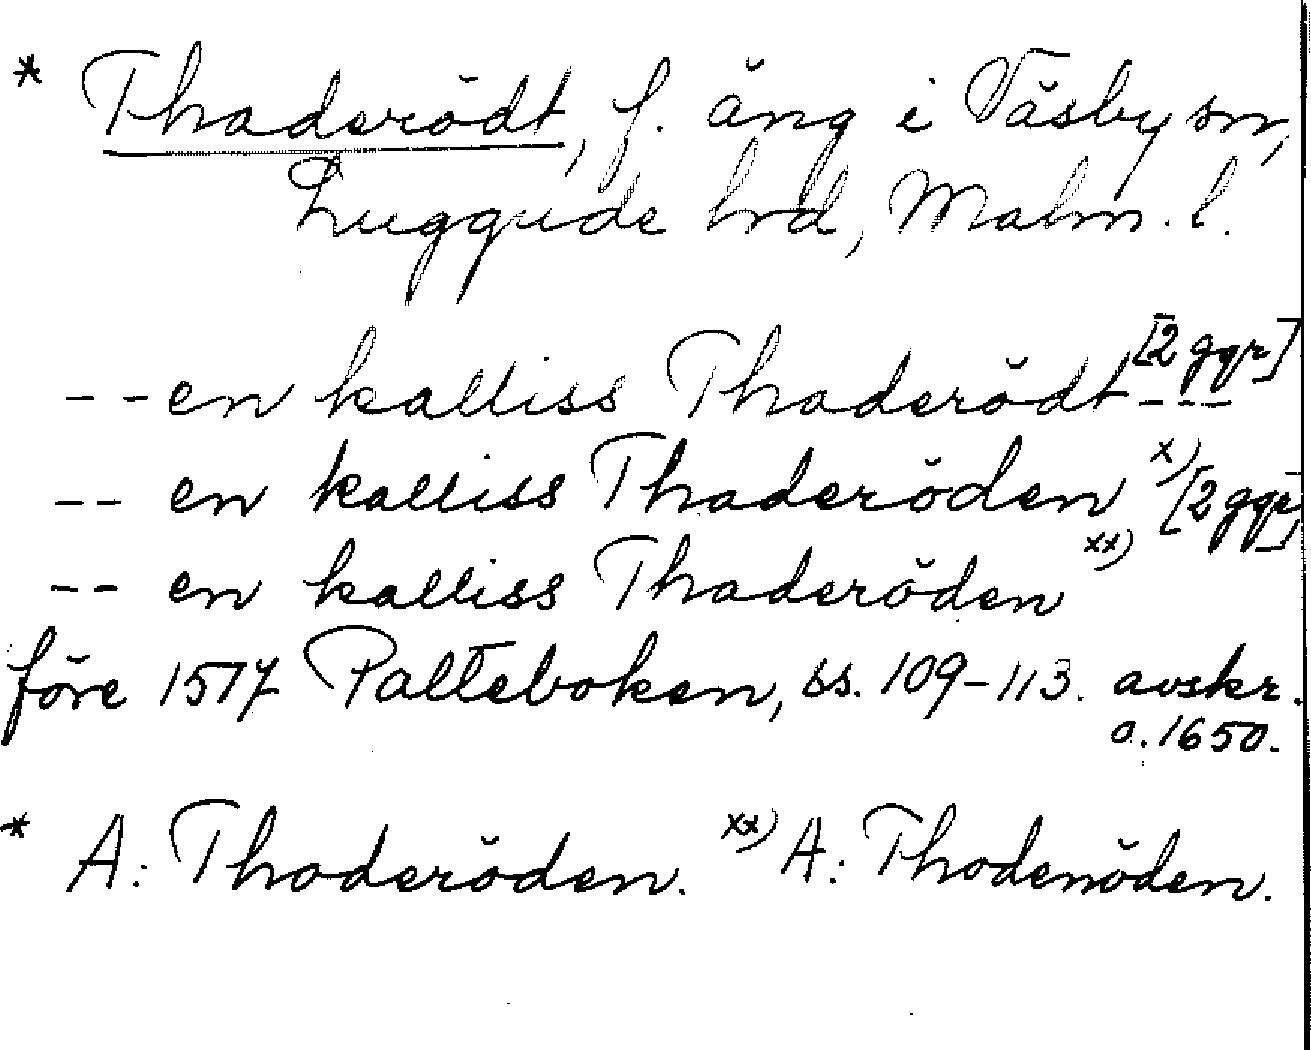 * Thaderödt, f. äng i Väsby sn,
Luggude hrd, Malm. l.
-- en kalliss Thaderödt --- [2 ggr]
-- en kalliss Thaderöden x) [2 ggr]
-- en kalliss Thaderöden xx)
före 1517 Palteboken, ss. 109-113. avskr.
o. 1650.
* A: Thoderöden. xx) A: Thodenöden.